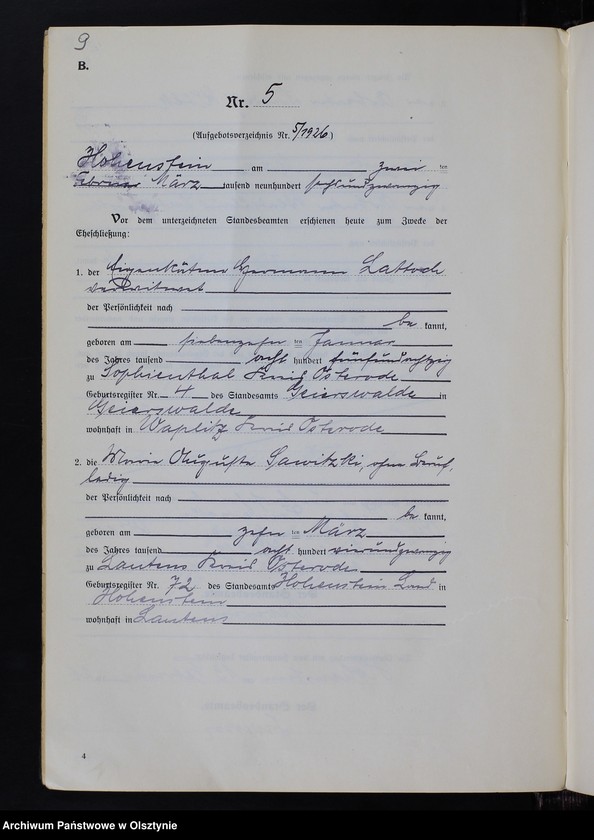 9
B.
Nr. 5
(Aufgebotsverzeichnis Nr. 5/1926)
Hohenstein am zwei ten
Februar März tausend neunhundert sechsundzwanzig
Vor dem unterzeichneten Standesbeamten erschienen heute zum Zwecke der
Eheschließung:
1. der Eigenkätner Hermann Lattoch
verwitwet
der Persönlichkeit nach
be kannt,
geboren am siebenzehn ten Januar
des Jahres tausend acht hundert fünfundachtzig
zu Sophienthal Kreis Osterode
Geburtsregister Nr. 4 des Standesamts Geierswalde in
Geierswalde
wohnhaft in Waplitz Kreis Osterode
2. die Marie Auguste Sawitzki, ohne Beruf,
ledig
der Persönlichkeit nach
be kannt,
geboren am zehn ten März
des Jahres tausend acht hundert
zu Lautens Kreis Osterode
Geburtsregister Nr. 72 des Standesamts Hohenstein Land in
Hohenstein
wohnhaft in Lautens
4
Archiwum Państwowe w Olsztynie